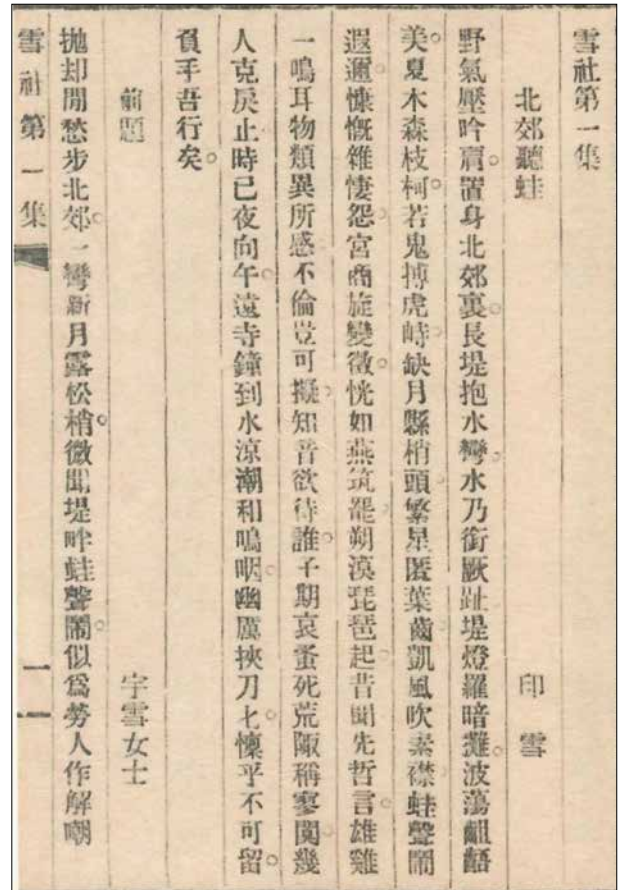 雪社第一集
北郊聽蛙 印雪
野氣壓吟肩。置身北郊裏。長堤抱水彎。水乃銜厥趾。堤燈羅暗灘。波蕩齟齬
美。夏木森枝柯。若鬼搏虎峙。缺月縣梢頭。繁星匿葉齒。凱風吹素襟。蛙聲鬧
遐邇。慷慨雜悽怨。宮商旋變徵。恍如燕筑罷。朔漠琵琶起。昔聞先哲言。雄雞
一鳴耳。物類異所感。不倫豈可擬。知音欲待誰。子期哀蚤死。荒陬稱寥闃。幾
人克戾止。時已夜向午。遠寺鐘到水。涼潮和鳴咽。幽厲挾刀匕。懍乎不可留。
負手吾行矣。
前題 宇雪女士
拋却閒愁步北郊。一彎新月露松梢。微聞堤畔蛙聲鬧。似爲勞人作解嘲
雪社第一集 一